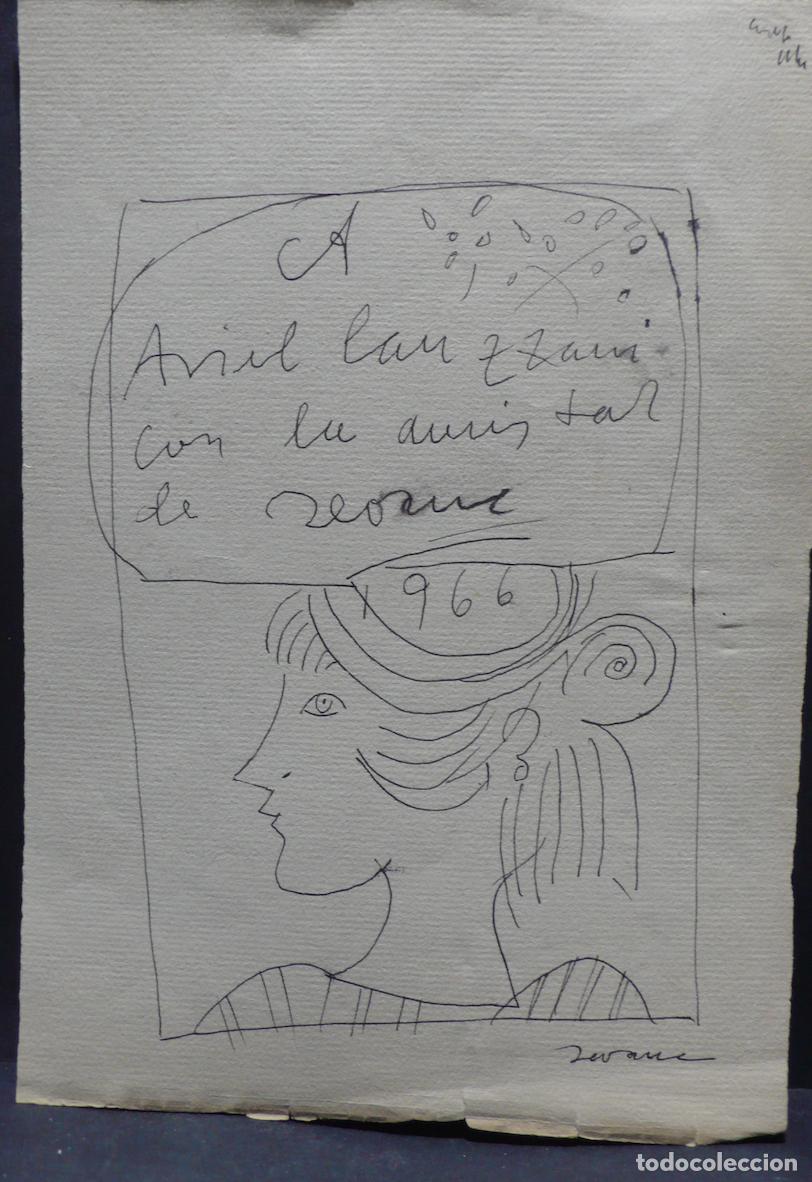 A
Ariel Canzzani
con la amistad
de Seoane
1966
Seoane
todocoleccion